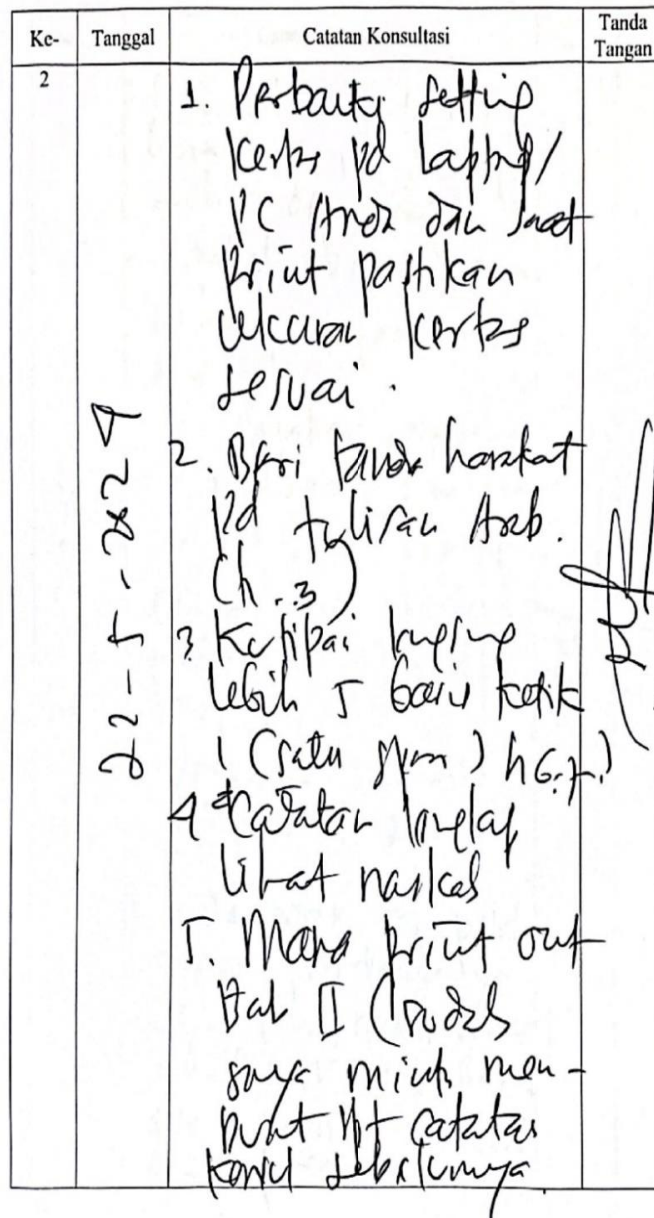 Ke- Tanggal Catatan Konsultasi Tanda Tangan
2
22-5-2024
1. Perbaiki setting
kertas pd laptop/
PC Anda dan saat
Print pastikan
ukuran kertas
sesuai.
2. Beri tanda harakat
pd tulisan Arab.
(h. 3)
3 Kutipan langsung
lebih 5 baris ketik
1 (satu spasi) h 6.7.)
4 Catatan lengkap
lihat naskah
5. Mana print out
Bab II (sudah
saya minta men-
catatan
sebelumnya